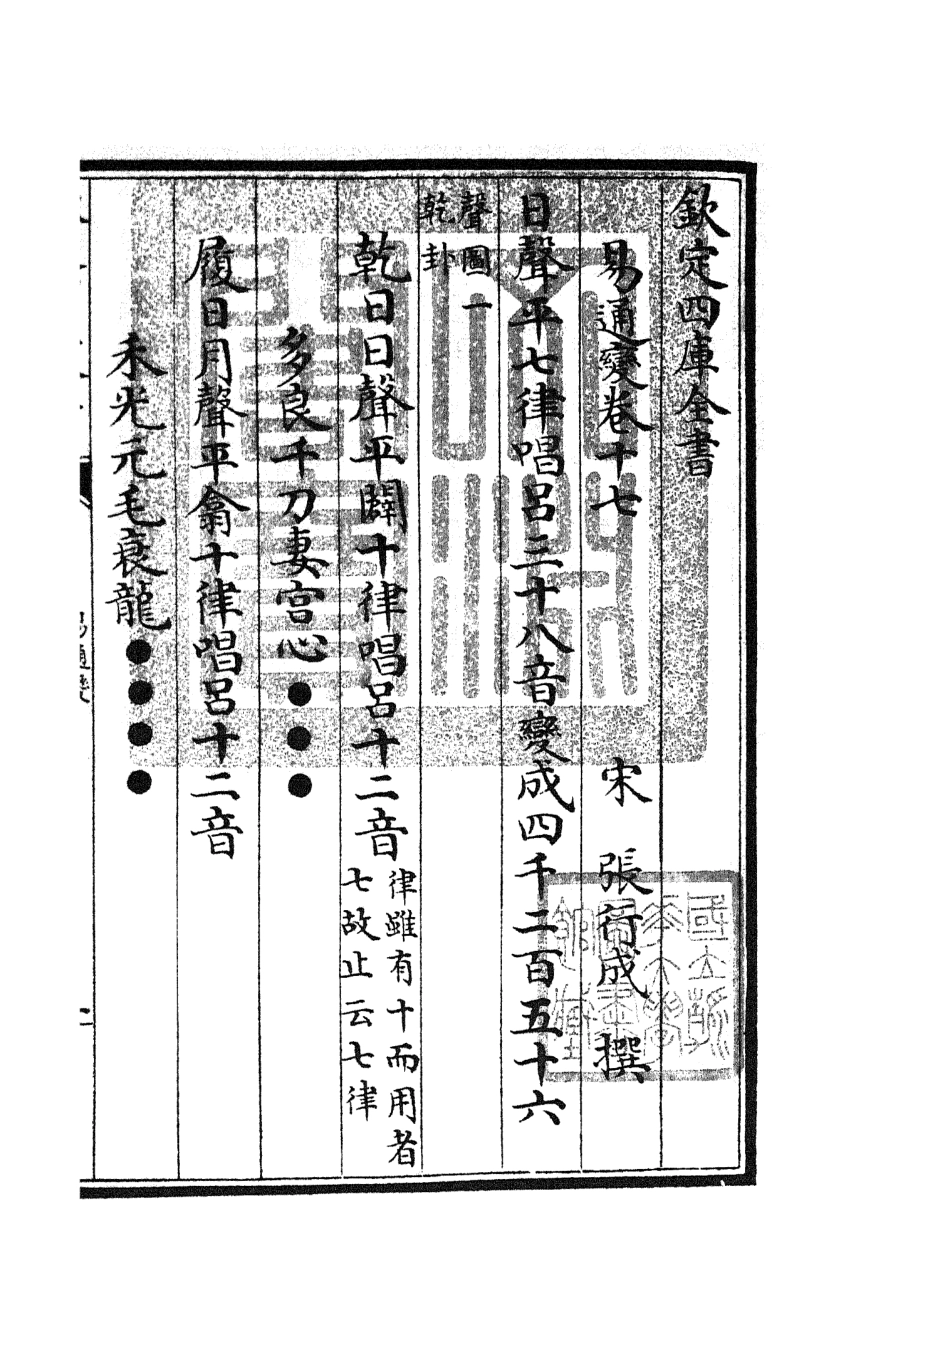 欽定四庫全書
易通變卷十七 宋 張行成 撰
日聲平七律唱呂三十八音變成四千二百五十六
聲圖一
乾卦
乾日日聲平闢十律唱呂十二音
律雖有十而用者
七故止云七律
多良千刀妻宮心●●●
履日月聲平翕十律唱呂十二音
禾光元毛衰龍●●●●
易通變